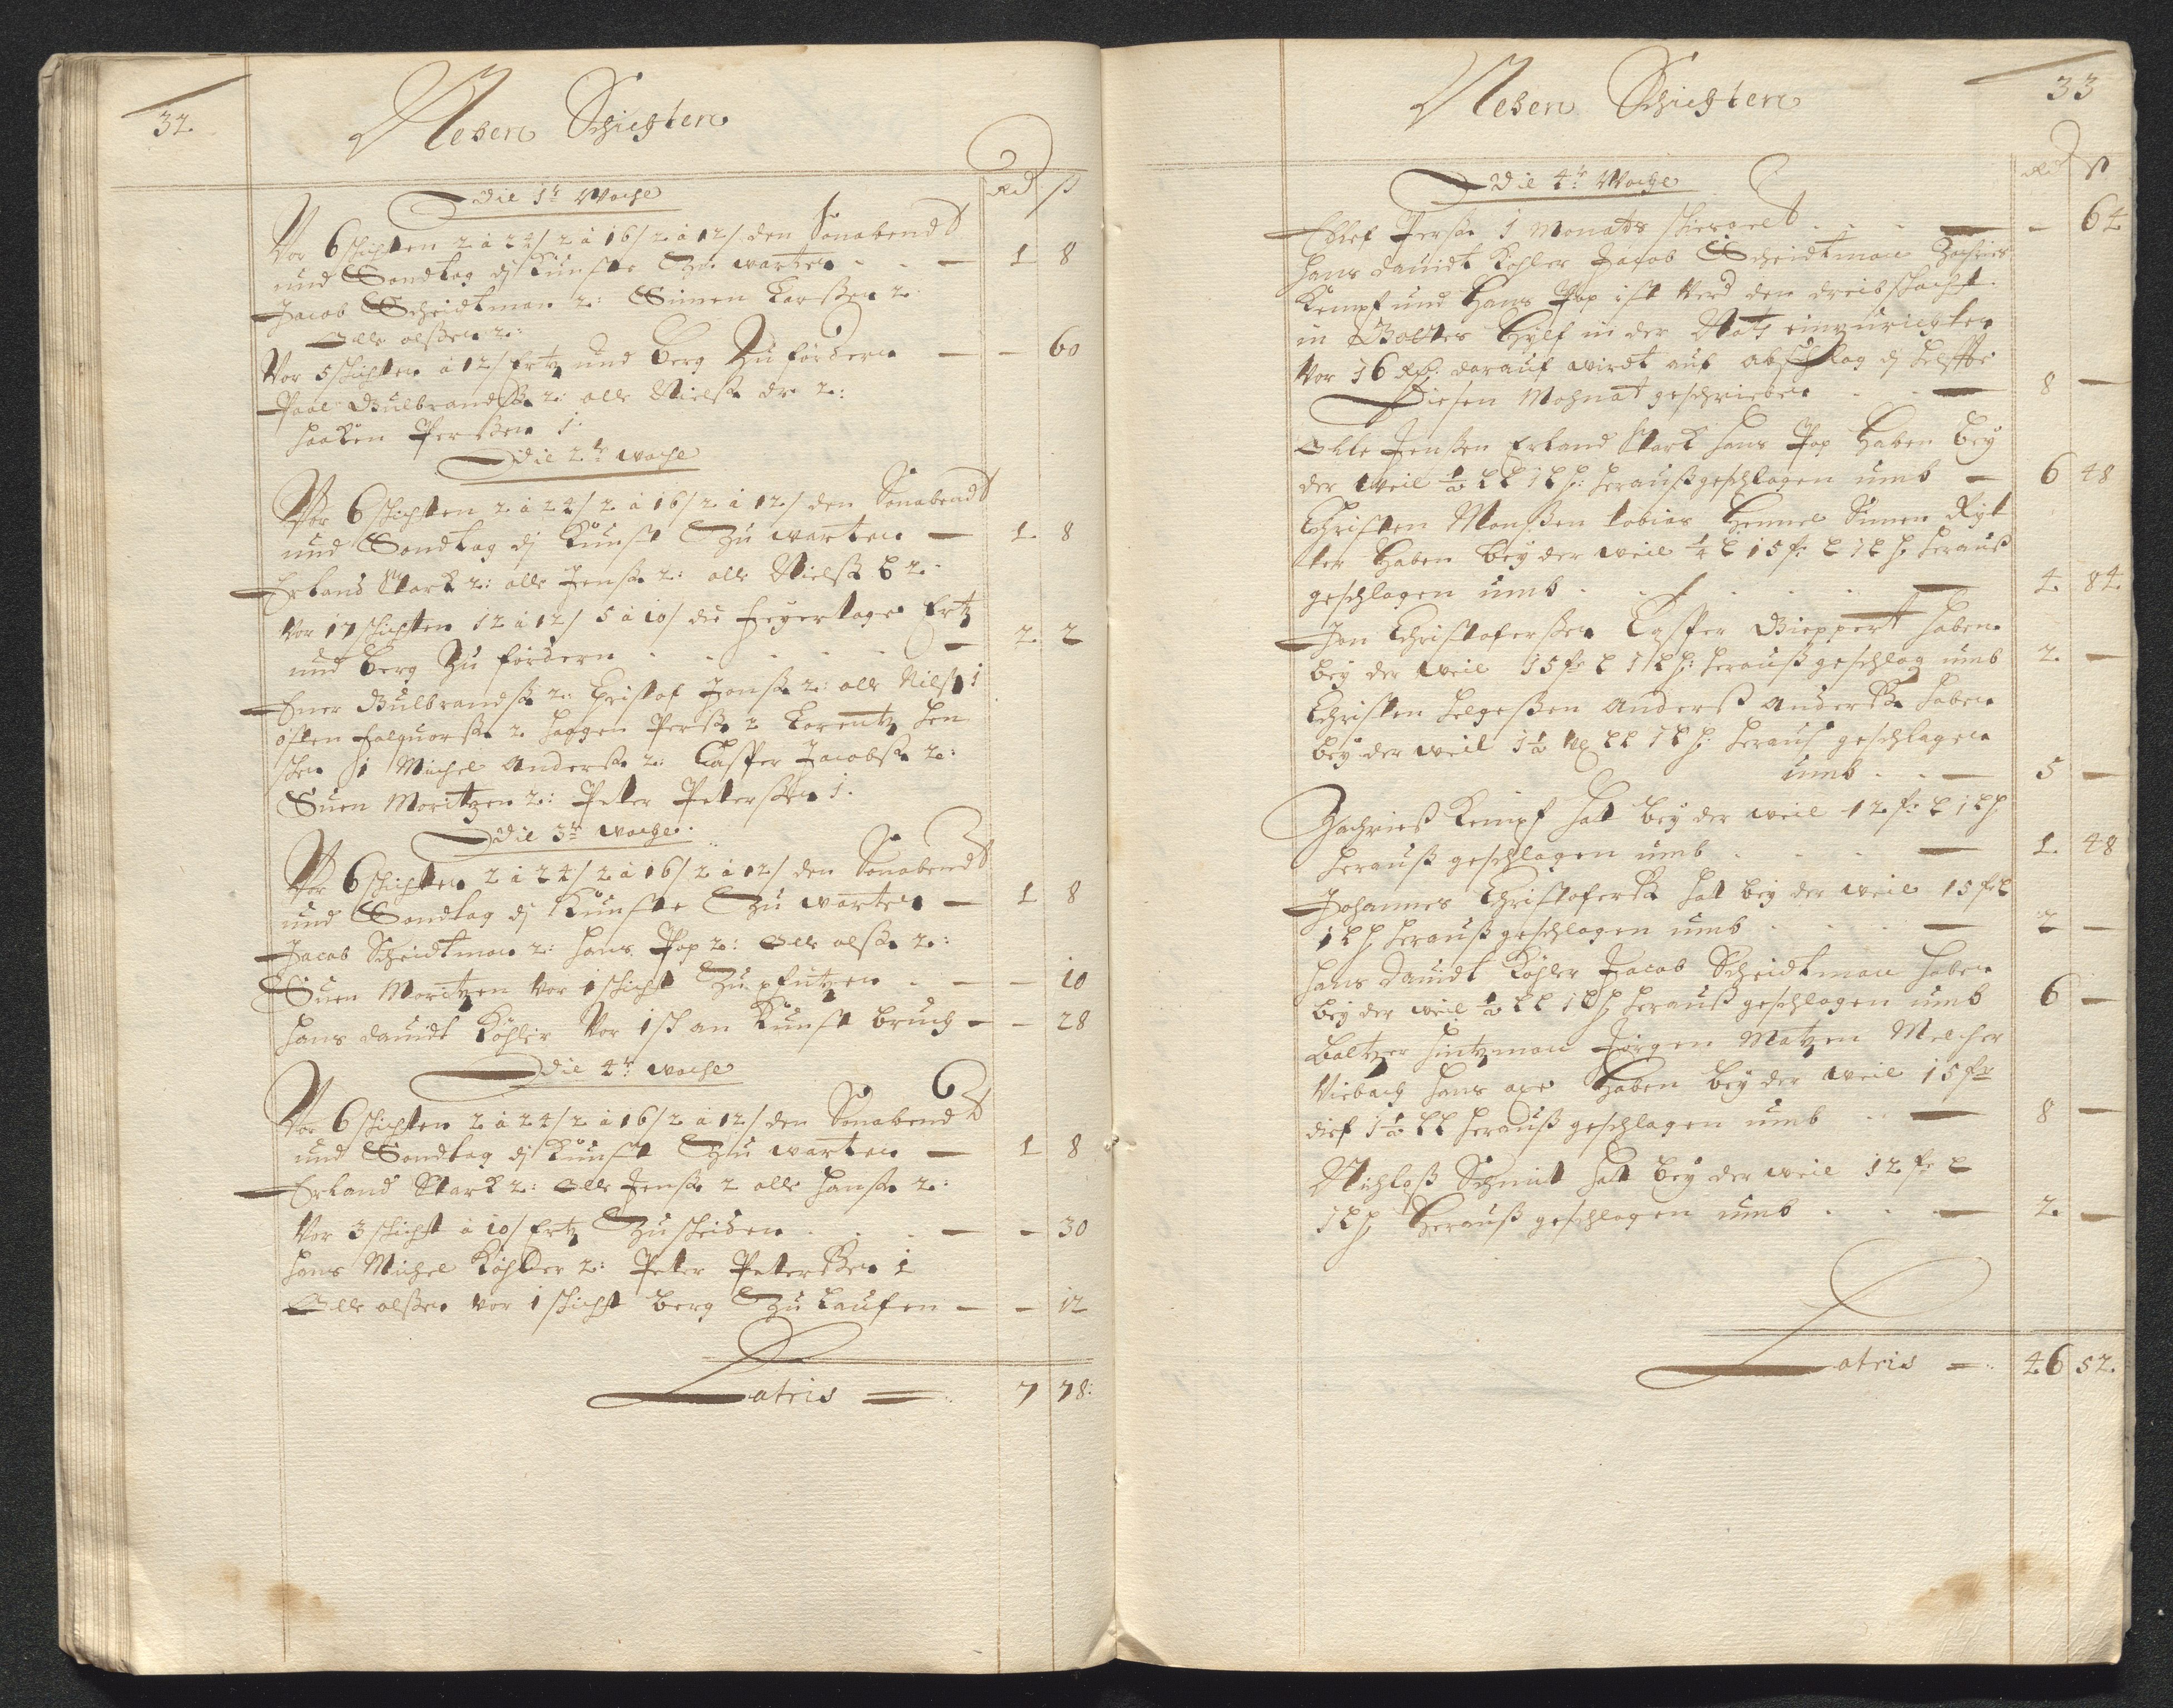 32.
Neben Schichten
Rd ß
Die 1te Woche
Vor 6 schichten 2 à 24/ 2 à 16/ 2 à 12/ den Sonabendt
und Sondtag dj Künste Zu warten - - — 1 8
Jacob Scheidtman 2: Simen Larßen 2
Olle olßen 2:
Vor 5 schichten à 12/ Ertz und berg Zu fördern — – 60
Paal Gulbrandß 2 olle Nielß dr 2:
Haaken Perßen 1.
Die 2te woche
Vor 6 schichten 2 à 24/ 2 à 16/ 2 à 12/ den Sonabendt
und Sondtag dj Künst Zu warten — 1. 8
Erland Stark 2: olle Jenß 2: olle Nielß B 2.
Vor 17 schichten 12 à 12/ 5 à 10/ die feyertage Ertz
und berg Zu fördern . . . . . — 2. 2
Einer Gulbrandß 2: Cristof Jonß 2: olle Nilß 1
östen Falquorß 2 Haagen Perß 2 Lorentz Hen
schen 1 Michel Anderß 2: Casper Jacobß 2:
Suen Moritzen 2: Peter Peterßen 1.
Die 3te woche.
Vor 6 schichten 2 à 24/ 2 à 16/ 2 à 12/ den Sonabendt
und Sondtag dj Künste Zu warten — 1 8
Jacob Scheidtman 2: Hans Pop 2: Olle olß 2:
Suen Moritzen Vor 1 schicht Zu pfützen . — – 10
Hans dauidt Köhler Vor 1 sch an Kunst bruch – – 28
Die 4te woche
Vor 6 schichten 2 à 24/ 2 à 16/ 2 à 12/ den Sonabendt
und Sondtag dj Künst Zu warten — 1 8
Erland Stark 2: Olle Jenß 2 olle Hanß 2:
Vor 3 schicht à 10/ Ertz Zu scheiden . . . — – 30
Hans Michel Köhler 2: Peter Peterßen 1
Olle olßen Vor 1 schicht berg Zu Laufen – – 12
Latris — 7 78:
33
Neben Schichten
Rd ß
Die 4te Woche
Perß 1 Monats . . . — – 64
Hans dauidt Köhler Jacob Scheidtman Zachries
Kempf und Hans Pop ist Verd den dreibschacht
in Gottes Hylf in der Noth einzurichten
Vor 16 Rd: darauf wirdt auf abschlag dj helffte
Diesen Mohnat geschrieben . . — 8 —
Olle Jenßen Erland Stark Hans Pop Haben bey
der weil ½ heraußgeschlagen umb — 6 48
Christen Monßen tobias Hemmel Simen Ryt
ter Haben bey der weil ¼ 15 herauß
geschlagen umb . . . . . — 4. 84.
Jon Christoferßen Casper Gieppert haben
bey der weil 15 heraußgeschlag umb 2. —
Christen Helgeßen Anderß Anderß haben
bey der weil 1½ herauß geschlagen
umb . . — 5 —
Zachrieß Kempf hat bey der weil 12
herauß geschlagen umb . . . — 1. 48
Johannes Christoferß hat bey der weil 15
heraußgeschlagen umb . . . — 2 —
Hans dauidt Köhler Jacob Scheidtman haben
bey der weil ½ heraußgeschlagen umb 6 —
Baltzer Hintzman Jörgen Matzen Melcher
Viebach Hans axe Haben bey der weil 15
dief 1½ heraußgeschlagen umb . — 8 —
Nichlaß Schmit hat bey der weil 12
Heraußgeschlagen umb . . . — 2. —
Latris — 46 52.